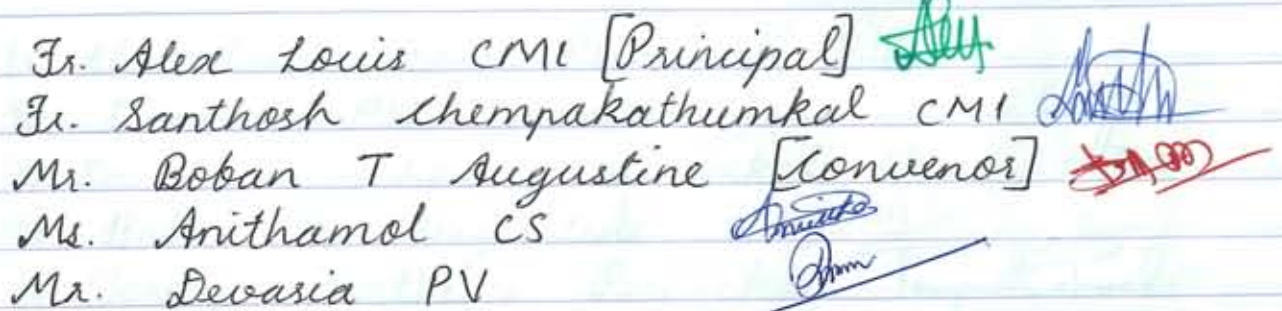 Fr. Alex Louis CMI [Principal]
Fr. Santhosh Chempakathumkal CMI
Mr. Boban T Augustine [Convenor]
Ms. Anithamol CS
Mr. Devasia PV